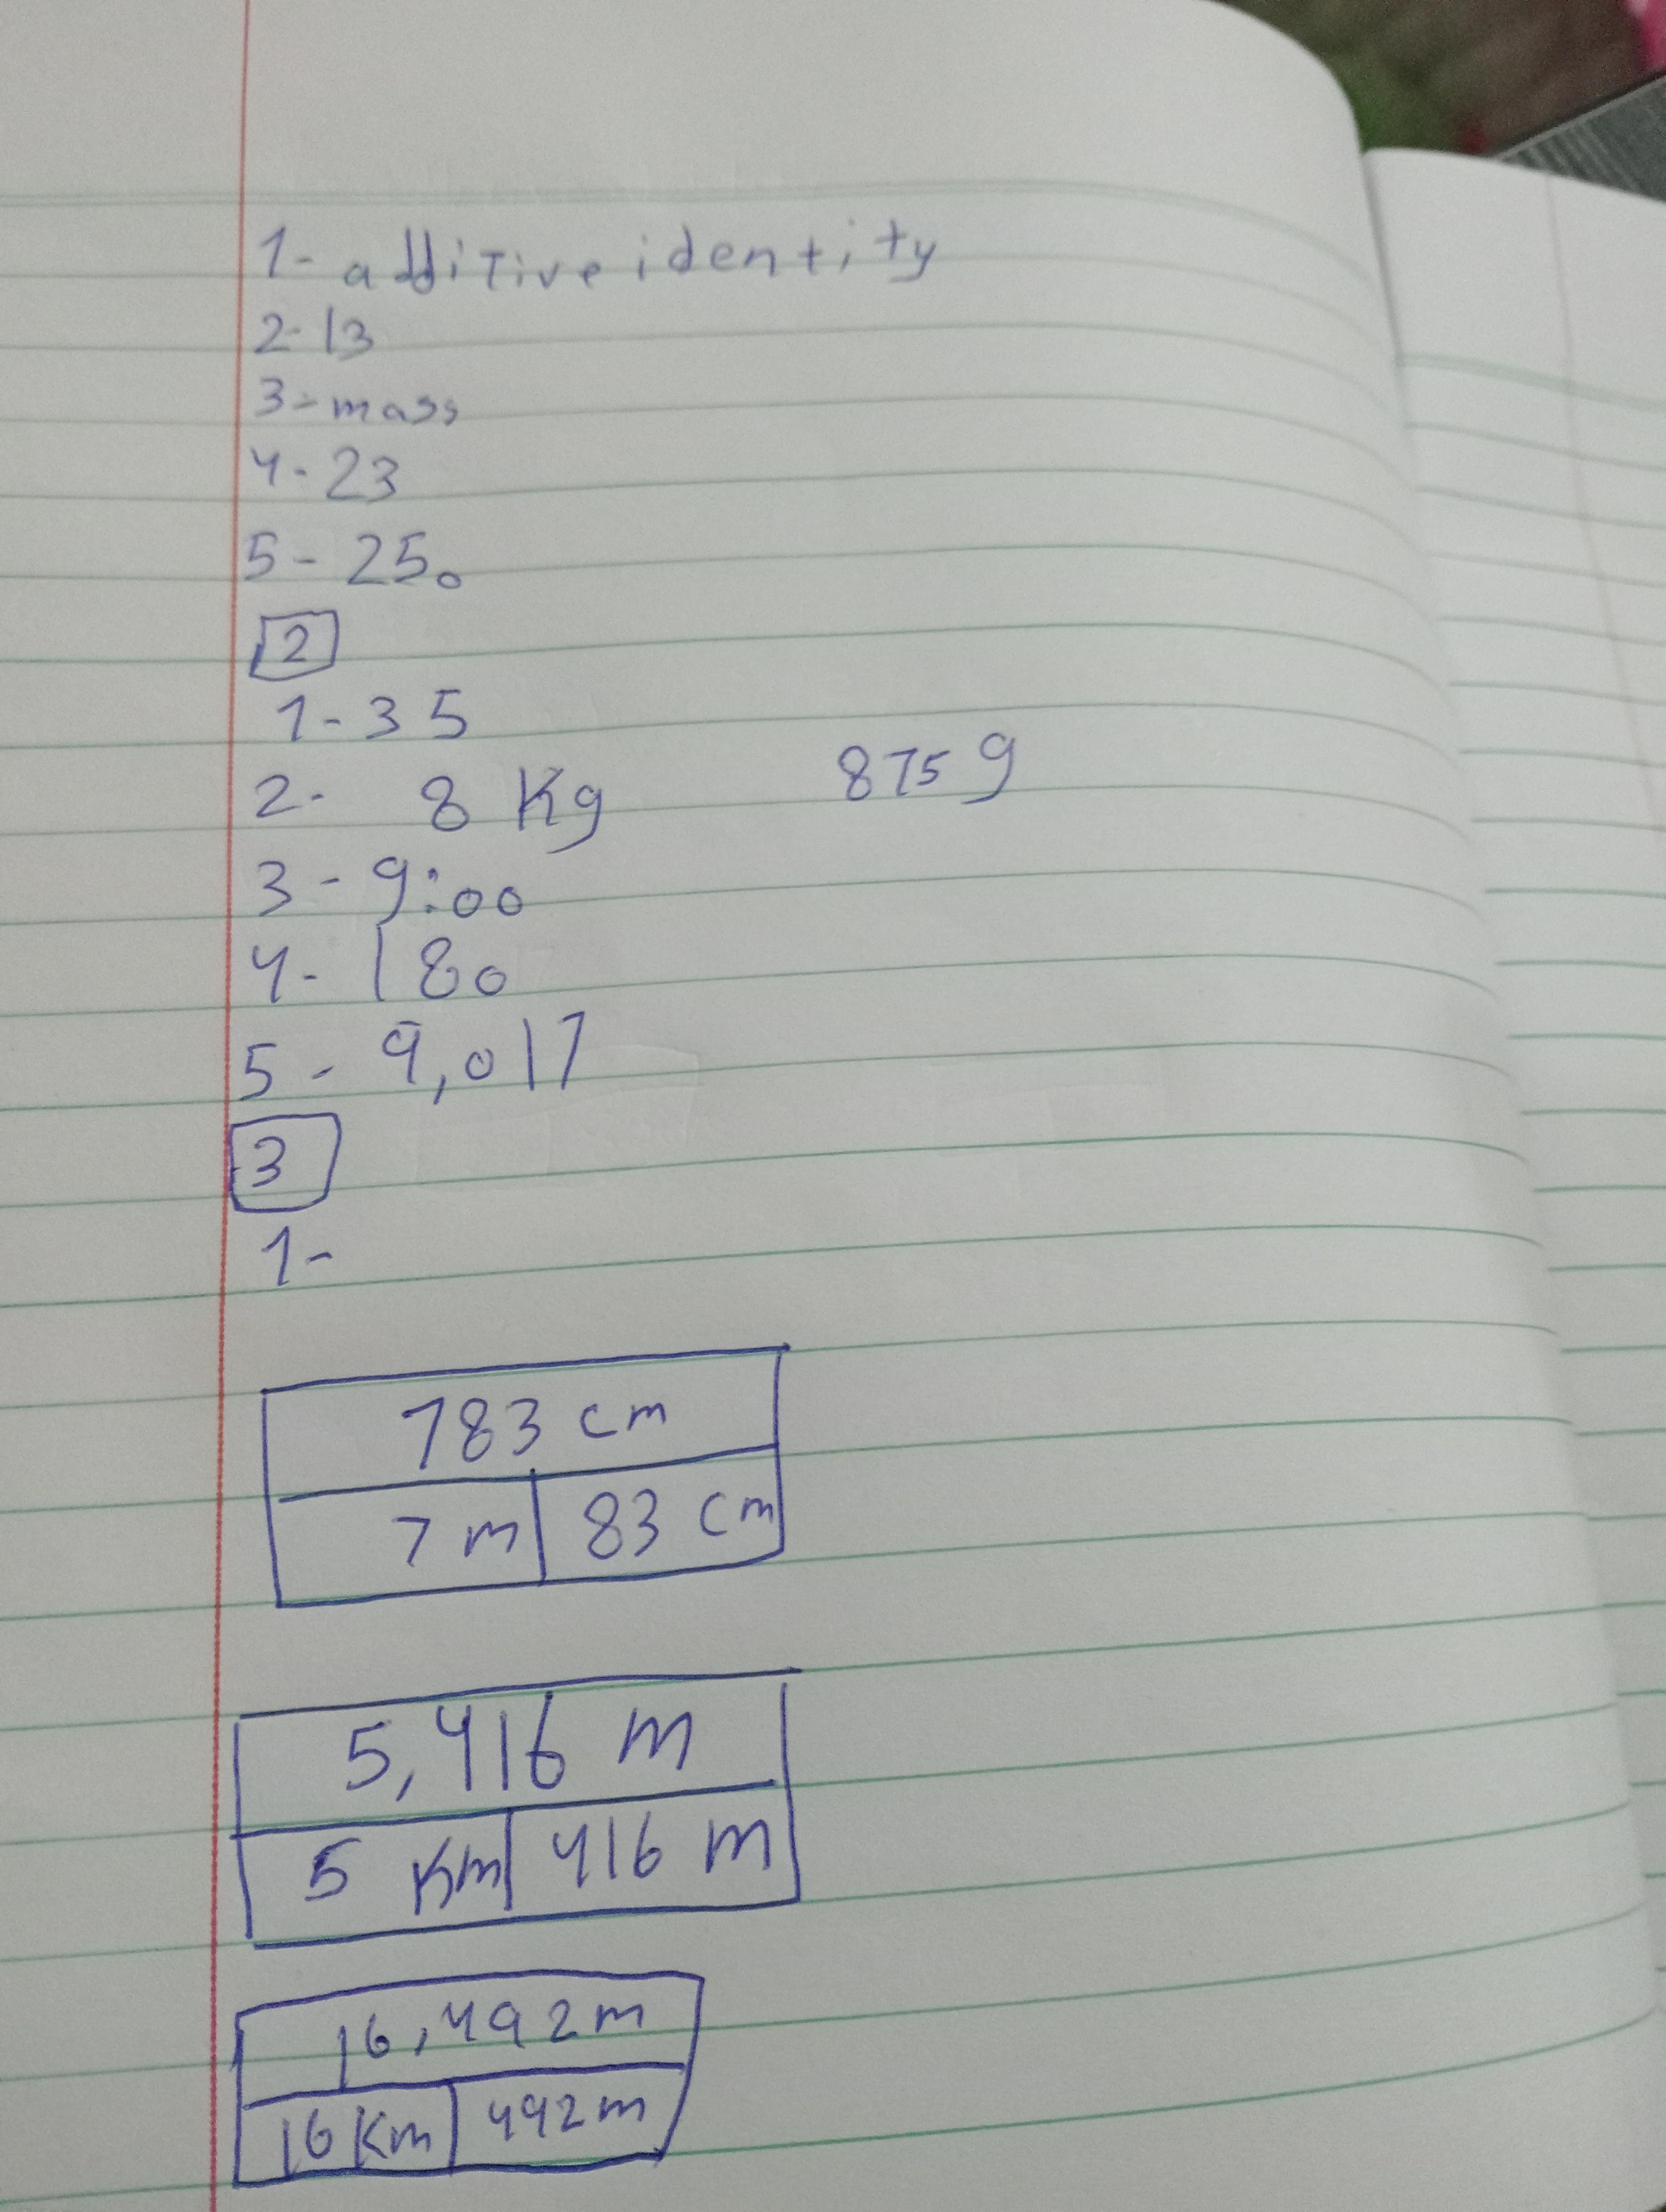 1- additive identity
2- 13
3- mass
4- 23
5- 250
2
1- 35
2- 8 Kg 875 g
3- 9:00
4- 180
5- 9,017
3
1-
783 cm
7 m 83 cm
5,416 m
5 Km 416 m
16,492 m
16 Km 492 m